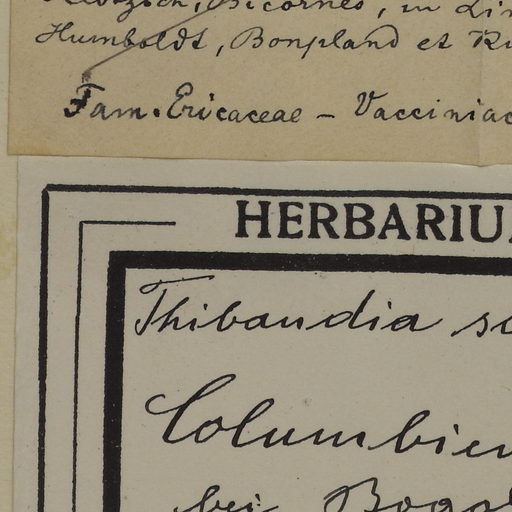 Klotzsch, Bicornes, in Lin
Humboldt, Bonpland et Ku
Fam. Ericaceae – Vacciniac
HERBARIU
Thibaudia sc
Columbien
bei Bogo